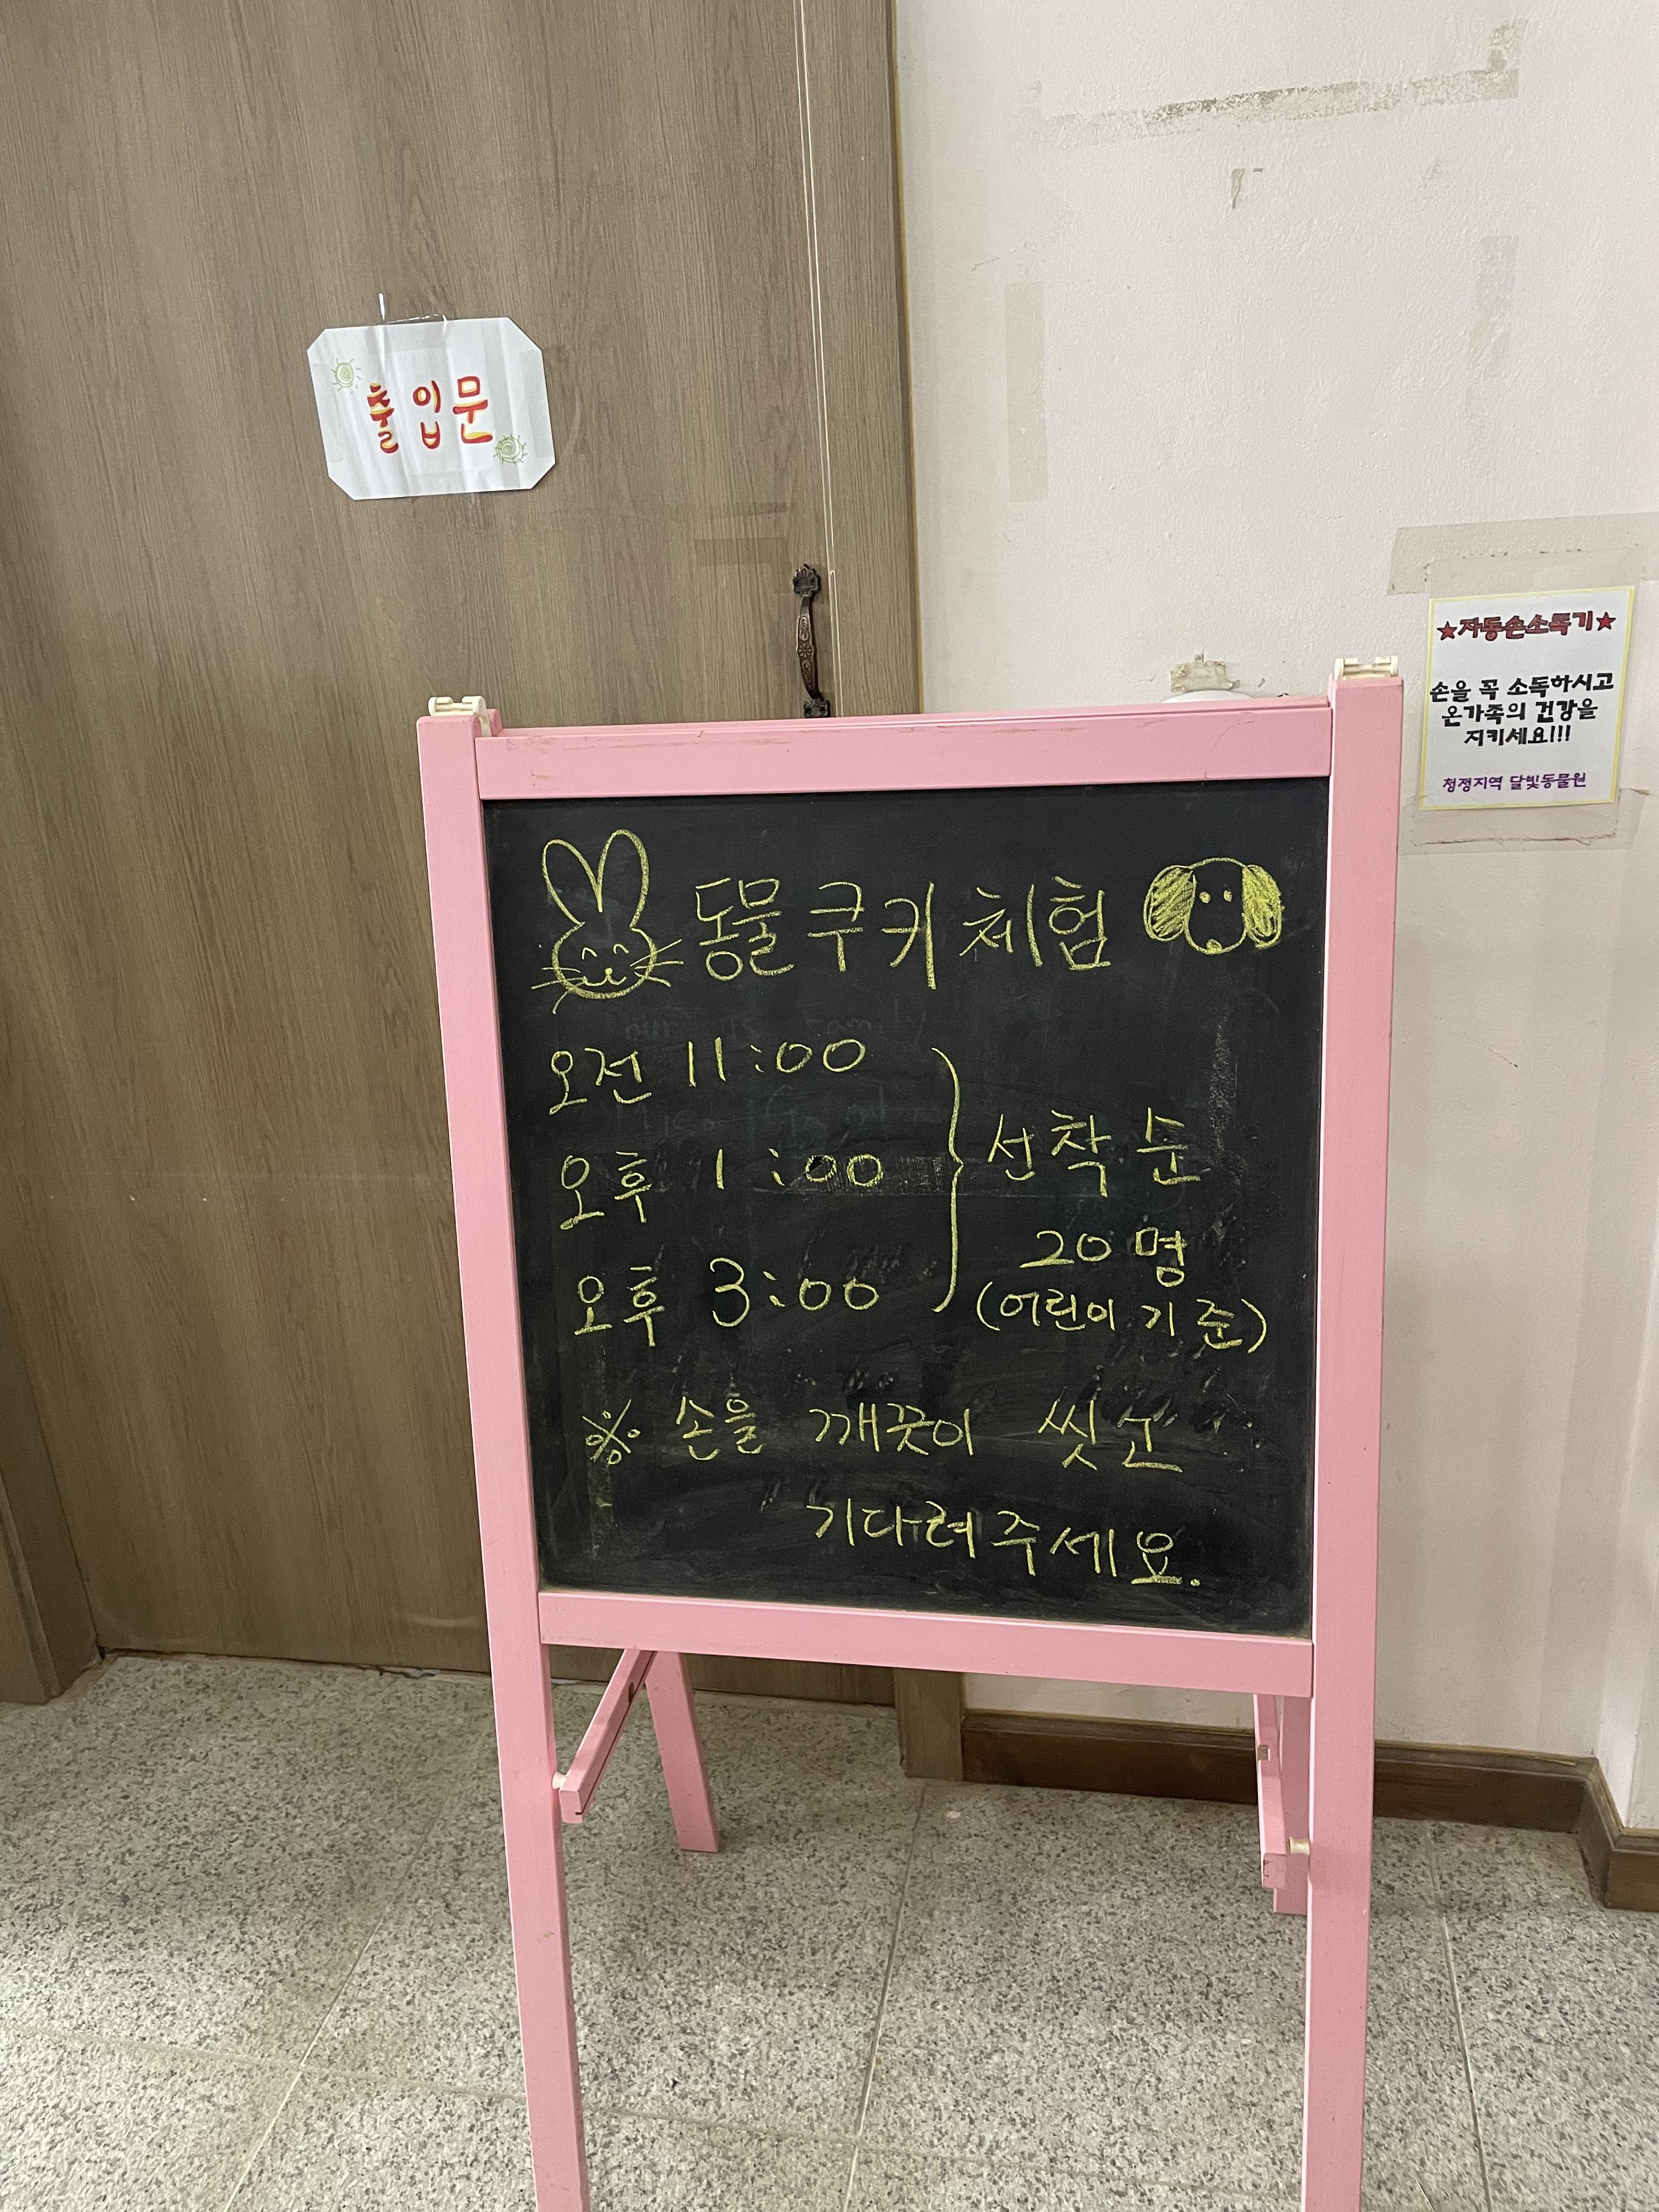 출입문
★자동손소독기★
손을 꼭 소독하시고
온가족의 건강을
지키세요!!!
청정지역 달빛동물원
동물쿠키 체험
오전 11:00
오후 1:00
오후 3:00
선착순
20명
(어린이 기준)
※ 손을 깨끗이 씻고
기다려주세요.